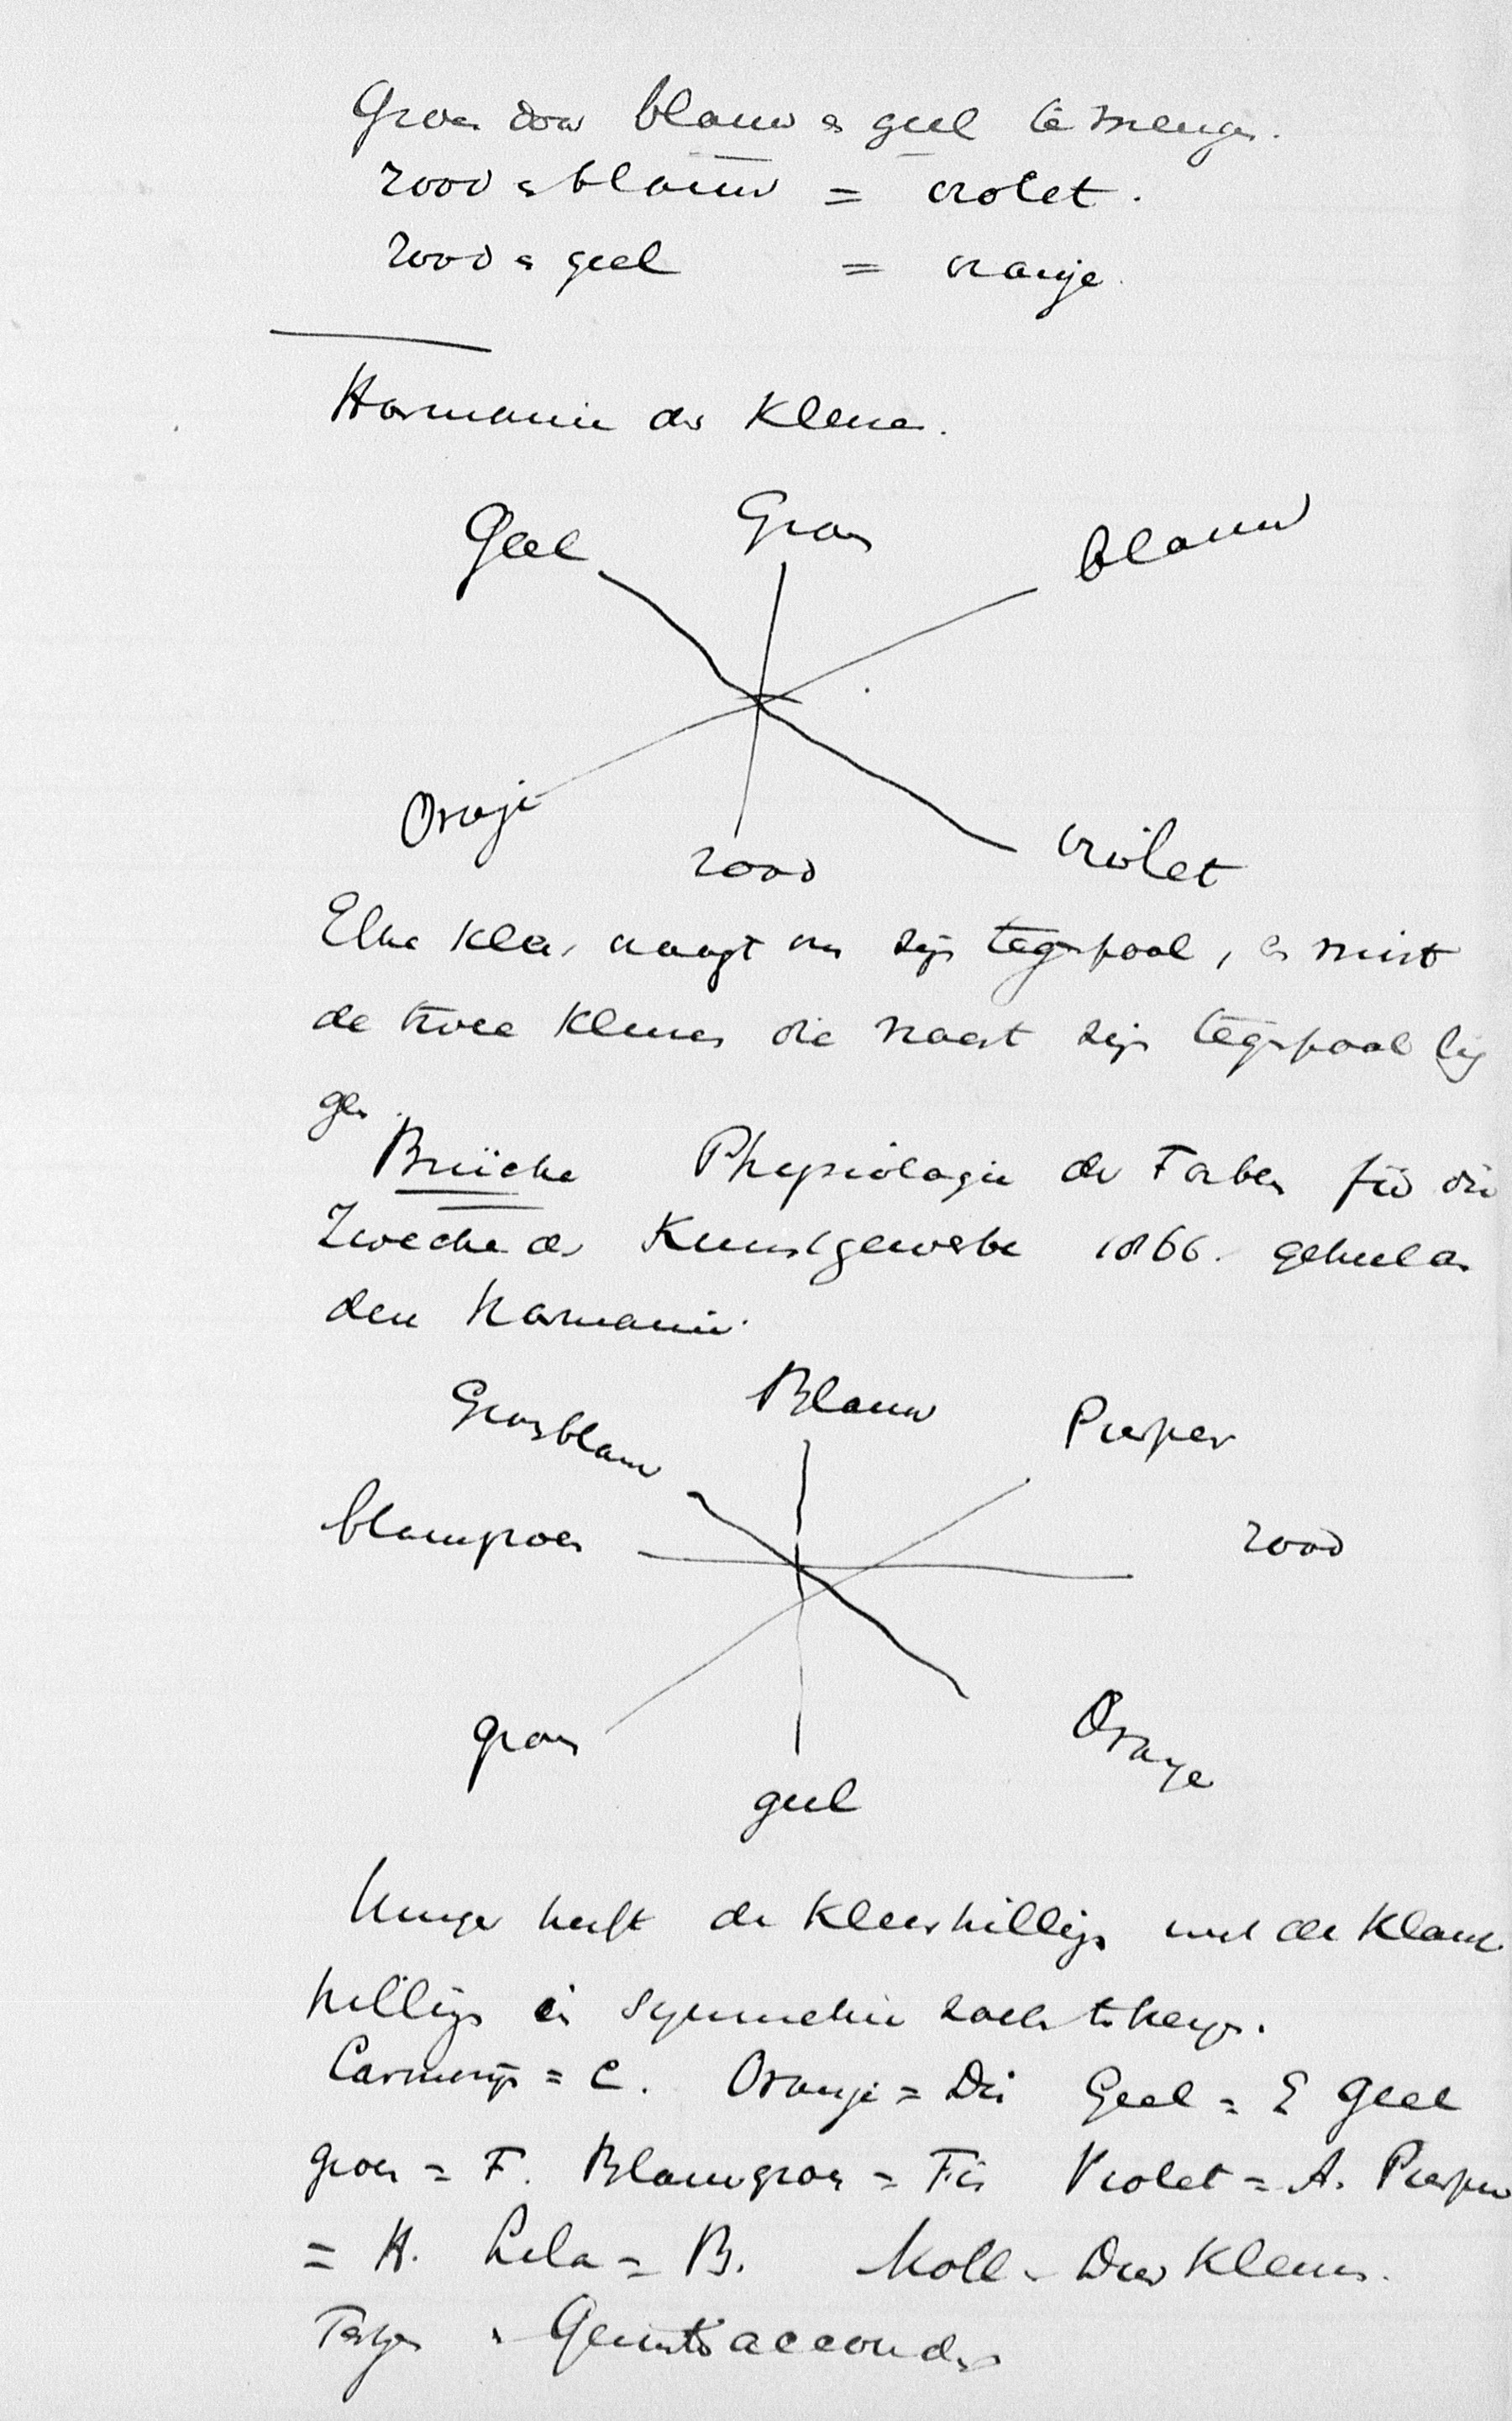 Groen door blauw en geel te mengen.
rood en blauw = violet.
rood en geel = oranje.
Harmonie der Kleuren.
Geel Groen blauw
Oranje rood violet
Elke kleur vraagt om zijn tegenpool, en mist
de twee kleuren die naast zijn tegenpool lig
gen.
Brücke Physiologie der Farben für die
Zwecke der Kunstgewerbe 1866.
den harmonie.
Groenblauw Blauw Purper
blauwgroen rood
groen geel Oranje
Unger heeft de kleurtrillingen met de klank
trillingen in symmetrie zoeken te brengen.
Carmijn = C. Oranje = Dis Geel = E Geel
groen = F. Blauwgroen = Fis Violet = A. Purper
= H. Lila = B. Moll - Dur Kleuren.
Tertsen en Quintsaccoorden